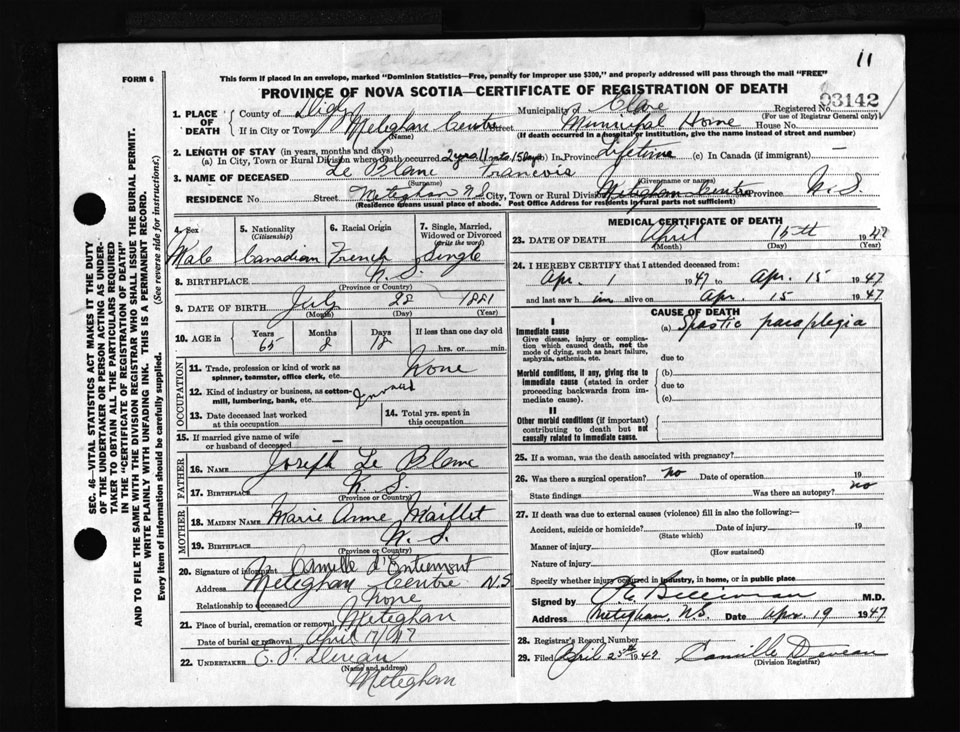 11
FORM 6
This form if placed in an envelope, marked "Dominion Statistics—Free, penalty for improper use $300," and properly addressed will pass through the mail "FREE"
PROVINCE OF NOVA SCOTIA—CERTIFICATE OF REGISTRATION OF DEATH
03142
1. PLACE OF DEATH County of Digby Municipality of Clare Registered No.
(For use of Registrar General only)
If in City or Town Meteghan Centre Street Municipal Home House No.
(Name) (If death occurred in a hospital or institution, give the name instead of street and number)
2. LENGTH OF STAY (in years, months and days)
(a) In City, Town or Rural Division where death occurred 2 yrs 11 mts 15 days (b) In Province Lifetime (c) In Canada (if immigrant) —
3. NAME OF DECEASED Le Blanc Francois
(Surname) (Given name or names)
RESIDENCE No. Street Meteghan N.S. City, Town or Rural Division Meteghan Centre Province N.S.
(Residence means usual place of abode. Post Office Address for residents in rural parts not sufficient)
4. Sex Male
5. Nationality (Citizenship) Canadian
6. Racial Origin French
7. Single, Married, Widowed or Divorced (write the word) Single
8. BIRTHPLACE N.S.
(Province or Country)
9. DATE OF BIRTH July 28 1881
(Month) (Day) (Year)
10. AGE in Years 65 Months 8 Days 18 If less than one day old
hrs. or min.
OCCUPATION
11. Trade, profession or kind of work as spinner, teamster, office clerk, etc. None
12. Kind of industry or business, as cotton-mill, lumbering, bank, etc. Invalid
13. Date deceased last worked at this occupation
14. Total yrs. spent in this occupation
15. If married give name of wife or husband of deceased —
FATHER
16. NAME Joseph Le Blanc
17. BIRTHPLACE N.S.
(Province or Country)
MOTHER
18. MAIDEN NAME Marie Anne Maillet
19. BIRTHPLACE N.S.
(Province or Country)
20. Signature of informant Camille d'Entremont
Address Meteghan Centre N.S.
Relationship to deceased None
21. Place of burial, cremation or removal Meteghan
Date of burial or removal April 17/47
22. UNDERTAKER E. Deveau
(Name and address)
Meteghan
MEDICAL CERTIFICATE OF DEATH
23. DATE OF DEATH April 15th 1947
(Month) (Day) (Year)
24. I HEREBY CERTIFY that I attended deceased from:
Apr. 1 1947 to Apr. 15 1947
and last saw him alive on Apr. 15 1947
CAUSE OF DEATH
I
Immediate cause (a) Spastic paraplegia
Give disease, injury or complication which caused death, not the mode of dying, such as heart failure, asphyxia, asthenia, etc.
due to
Morbid conditions, if any, giving rise to immediate cause (stated in order preceding backwards from immediate cause).
(b)
due to
(c)
II
Other morbid conditions (if important) contributing to death but not causally related to immediate cause.
25. If a woman, was the death associated with pregnancy?
26. Was there a surgical operation? no Date of operation 19
State findings Was there an autopsy? no
27. If death was due to external causes (violence) fill in also the following:
Accident, suicide or homicide? Date of injury 19
(State which)
Manner of injury
(How sustained)
Nature of injury
Specify whether injury occurred in industry, in home, or in public place
Signed by M.D.
Address Meteghan, N.S. Date Apr. 19 1947
28. Registrar's Record Number
29. Filed April 25th 1947 Camille Deveau
(Division Registrar)
SEC. 46—VITAL STATISTICS ACT MAKES IT THE DUTY
OF THE UNDERTAKER OR PERSON ACTING AS UNDER-
TAKER TO OBTAIN ALL THE PARTICULARS REQUIRED
IN THE "CERTIFICATE OF REGISTRATION OF DEATH"
AND TO FILE THE SAME WITH THE DIVISION REGISTRAR WHO SHALL ISSUE THE BURIAL PERMIT.
WRITE PLAINLY WITH UNFADING INK. THIS IS A PERMANENT RECORD.
Every item of information should be carefully supplied. (See reverse side for instructions.)